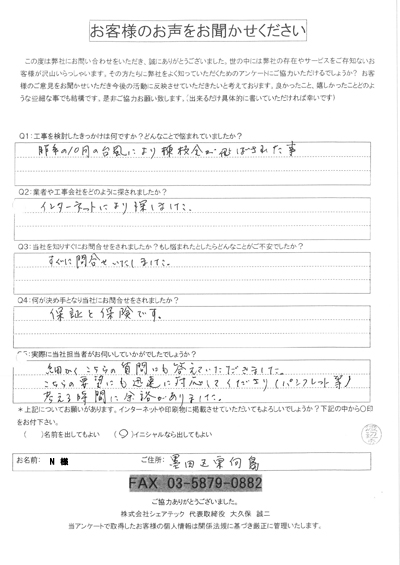 お客様のお声をお聞かせください
この度は弊社にお問い合わせをいただき、誠にありがとうございました。世の中には弊社の存在やサービスをご存知ないお
客様が沢山いらっしゃいます。その方たちに弊社をよく知っていただくためのアンケートにご協力いただけるでしょうか？ お客
様のご意見をお聞かせいただき今後の活動に反映させていきたいと考えております。良かったこと、嬉しかったことどのよう
な些細な事でも結構です。是非ご協力お願い致します。（出来るだけ具体的に書いていただければ幸いです）
Q1：工事を検討したきっかけは何ですか？どんなことで悩まれていましたか？
昨年の10月の台風により棟板金が飛ばされた事
Q2：業者や工事会社をどのように探されましたか？
インターネットにより探しました。
Q3：当社を知りすぐにお問合せをされましたか？もし悩まれたとしたらどんなことがご不安でしたか？
すぐに問合せいたしました。
Q4：何が決め手となり当社にお問合せをされましたか？
保証と保険です。
実際に当社担当者がお伺いしていかがでしたでしょうか？
細かくこちらの質問にも答えていただきました。
こちらの要望にも迅速に対応してくださり（パンフレット等）
考える時間に余裕がありました。
＊上記についてお願いがあります。インターネットや印刷物に掲載させていただいてもよろしいでしょうか？下記の中から〇印
をお付下さい。
（ ）名前を出してもよい （〇）イニシャルなら出してもよい
お名前： N 様 ご住所： 墨田区東向島
FAX 03-5879-0882
ご協力ありがとうございました。
株式会社シェアテック 代表取締役 大久保 誠二
当アンケートで取得したお客様の個人情報は関係法規に基づき厳正に管理いたします。